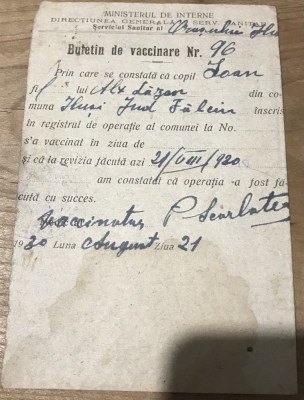 MINISTERUL DE INTERNE
DIRECȚIUNEA GENERALĂ A SERV. SANITAR
Serviciul Sanitar al Orașului Huși
Buletin de vaccinare Nr. 96
Prin care se constată că copil Ioan
fi lui Alx Lazăr din co-
muna Huși Jud Fălciu înscris
în registrul de operație al comunei la No.
s'a vaccinat în ziua de
și că la revizia făcută azi 21/VIII/930
am constatat că operația a fost fă-
cută cu succes.
P Scarlates
1930 Luna August Ziua 21